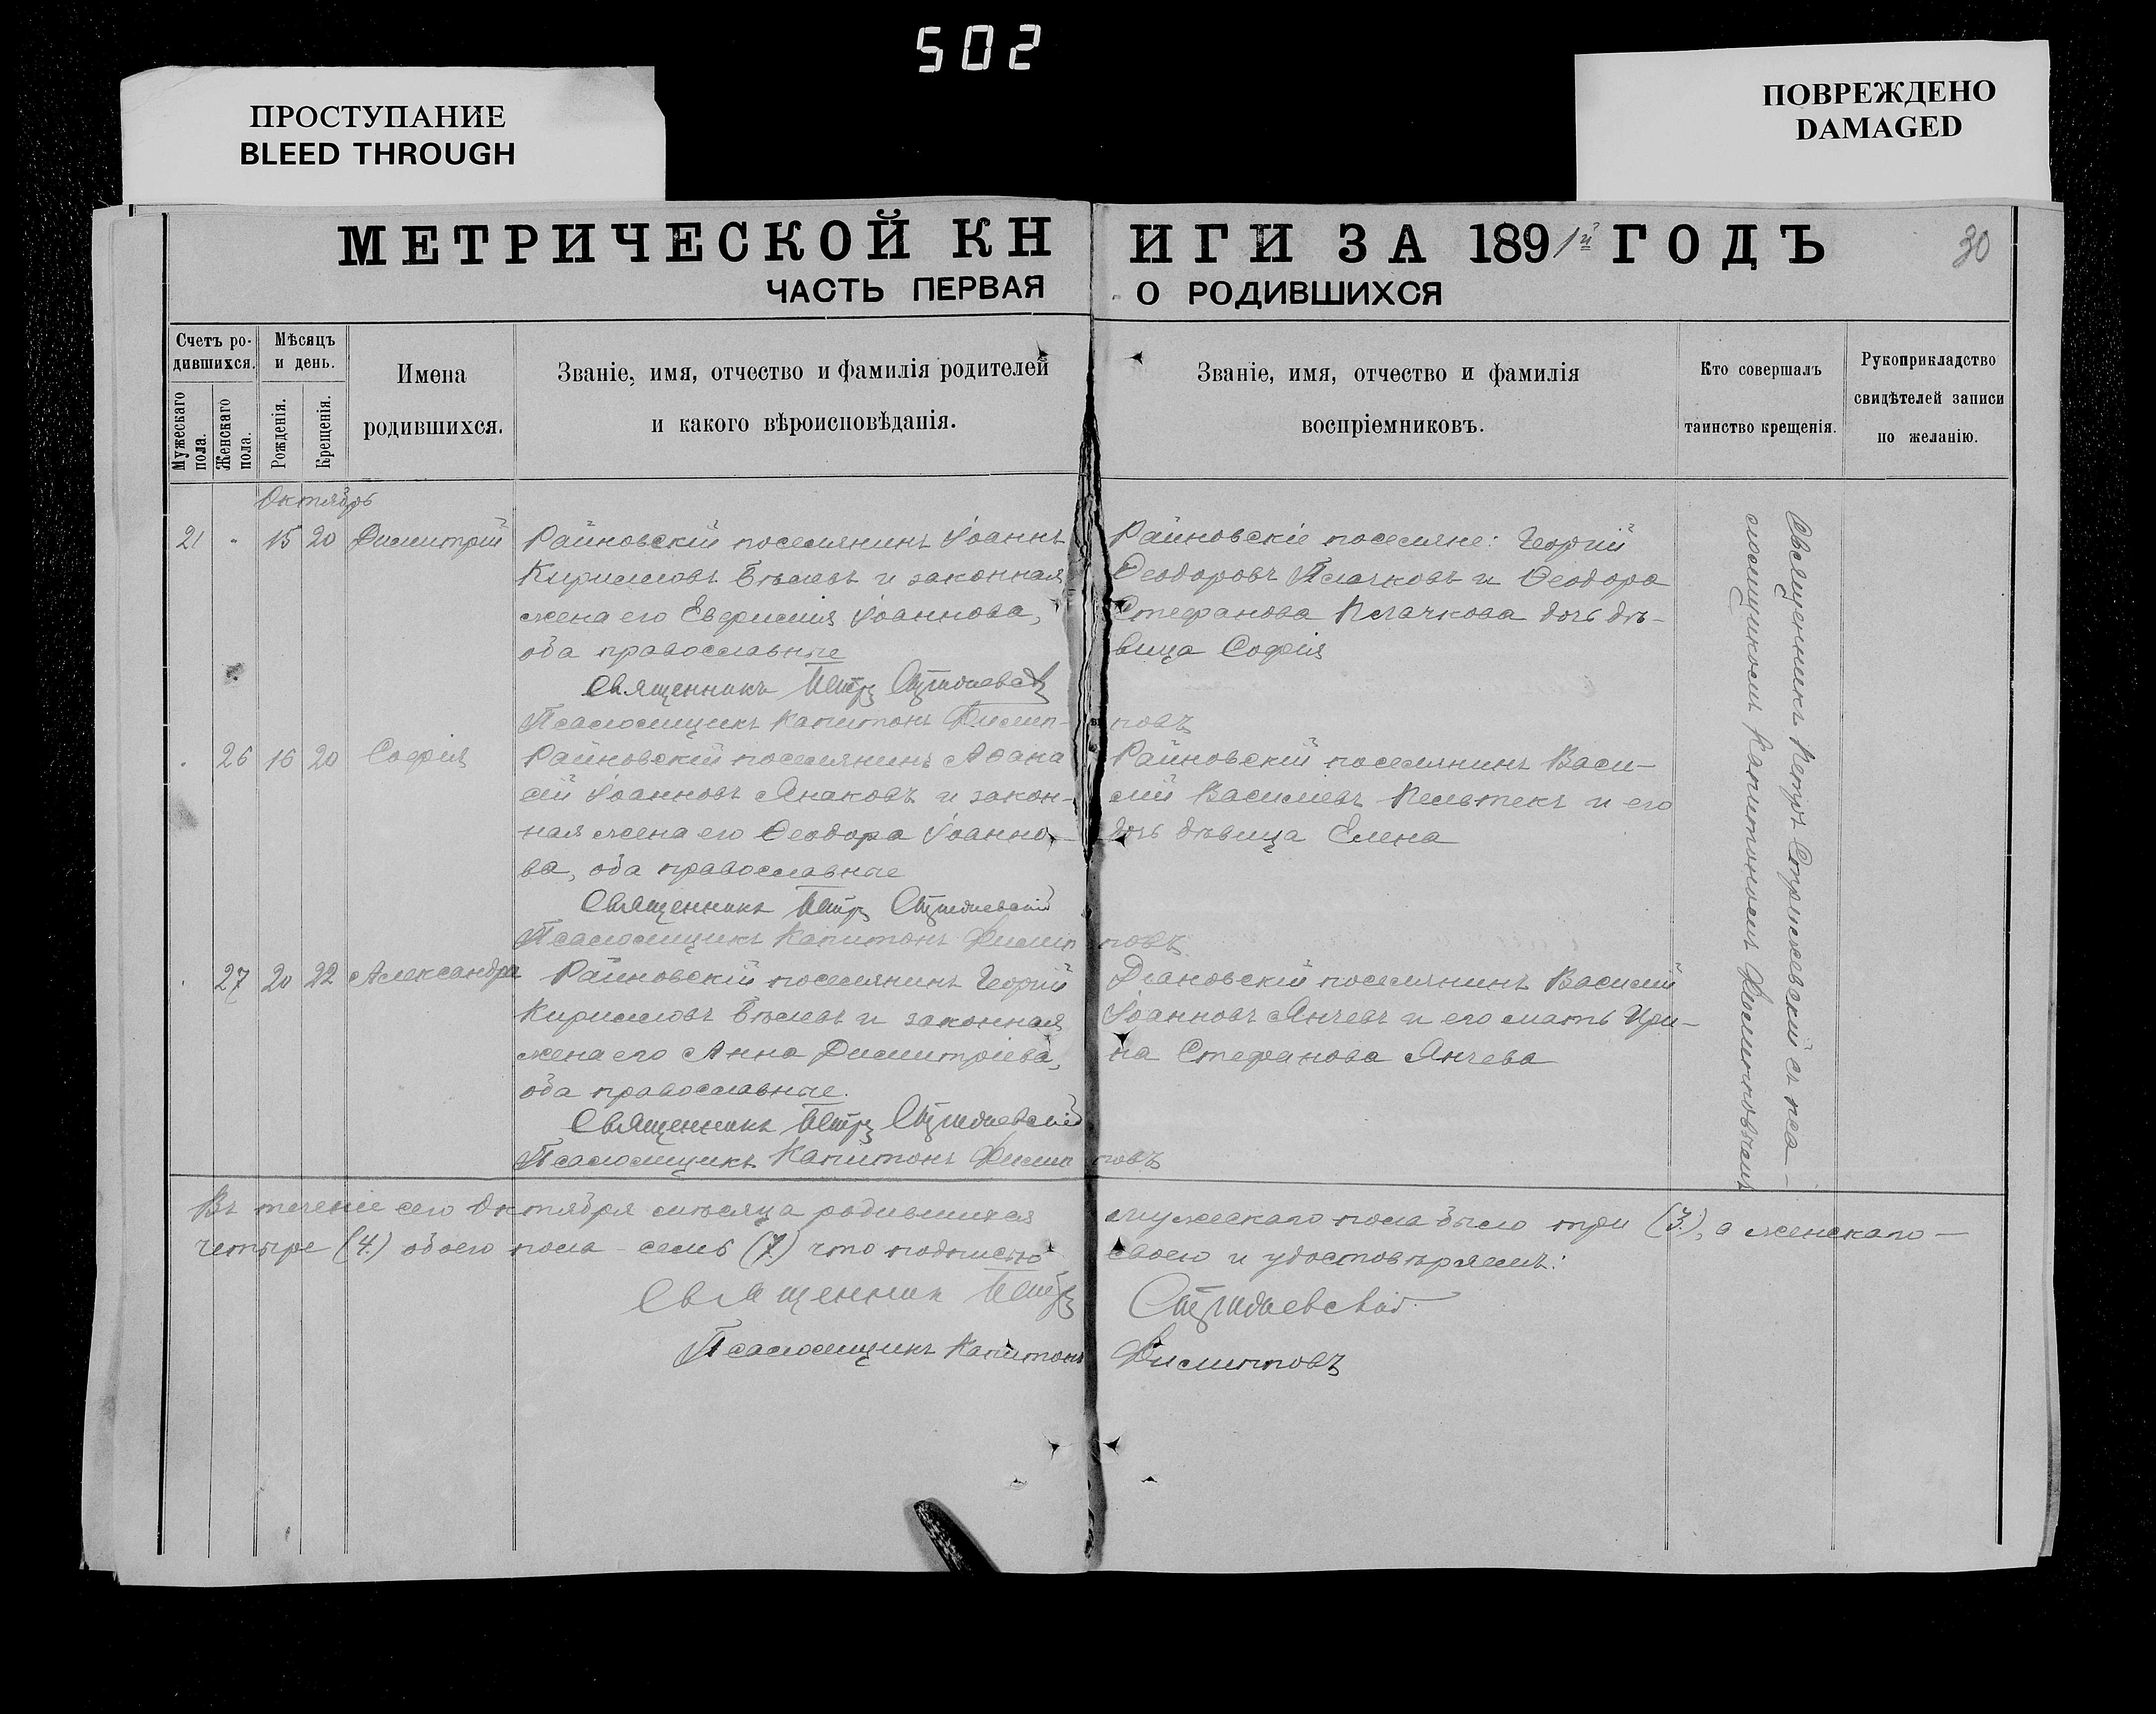 502
ПРОСТУПАНИЕ
BLEED THROUGH
ПОВРЕЖДЕНО
DAMAGED
МЕТРИЧЕСКОЙ КНИГИ ЗА 1891й ГОДЪ
30
ЧАСТЬ ПЕРВАЯ О РОДИВШИХСЯ
Счетъ ро-
дившихся.
Мужескаго
пола.
Женскаго
пола.
Мѣсяцъ
и день.
Рожденія.
Крещенія.
Имена
родившихся.
Званіе, имя, отчество и фамилія родителей
и какого вѣроисповѣданія.
Званіе, имя, отчество и фамилія
воспріемниковъ.
Кто совершалъ
таинство крещенія.
Рукоприкладство
свидѣтелей записи
по желанію.
Октябрь
21 " 15 20 Димитрій
Райновскій поселянинъ Іоаннъ
Кирилловъ Бѣлевъ и законная
жена его Евфимія Іоаннова,
оба православные
Священникъ Петръ
Псаломщикъ Капитонъ Филипповъ
Райновскіе поселяне: Георгій
Ѳеодоровъ Плачковъ и Ѳеодора
Стефанова Плачкова дочь дѣ-
вица Софія
26 16 20 Софія
Райновскій поселянинъ Аѳана
сій Іоанновъ Янаковъ и закон-
ная жена его Ѳеодора Іоанно-
ва, оба православные
Священникъ Петръ Стрижевскій
Псаломщикъ Капитонъ Филипповъ
Райновскій поселянинъ Васи-
лій Васильевъ Пельтекъ и его
дочь дѣвица Елена
27 20 22 Александра
Райновскій поселянинъ Георгій
Кирилловъ Бѣлевъ и законная
жена его Анна Димитріева,
оба православные.
Священникъ Петръ Стрижевскій
Псаломщикъ Капитонъ Филипповъ
поселянинъ Василій
Іоанновъ Янчевъ и его мать Ири-
на Стефанова Янчева
Священникъ Петръ Стрижевскій съ пса-
ломщикомъ Капитономъ Филипповымъ
Въ теченіе сего Октября мѣсяца родившихся мужескаго пола было три (3.), а женскаго —
четыре (4.) обоего пола - семь (7.) что подписью своею и удостовѣряемъ:
Священник Петръ Стрижевскій.
Псаломщикъ Капитонъ Филипповъ